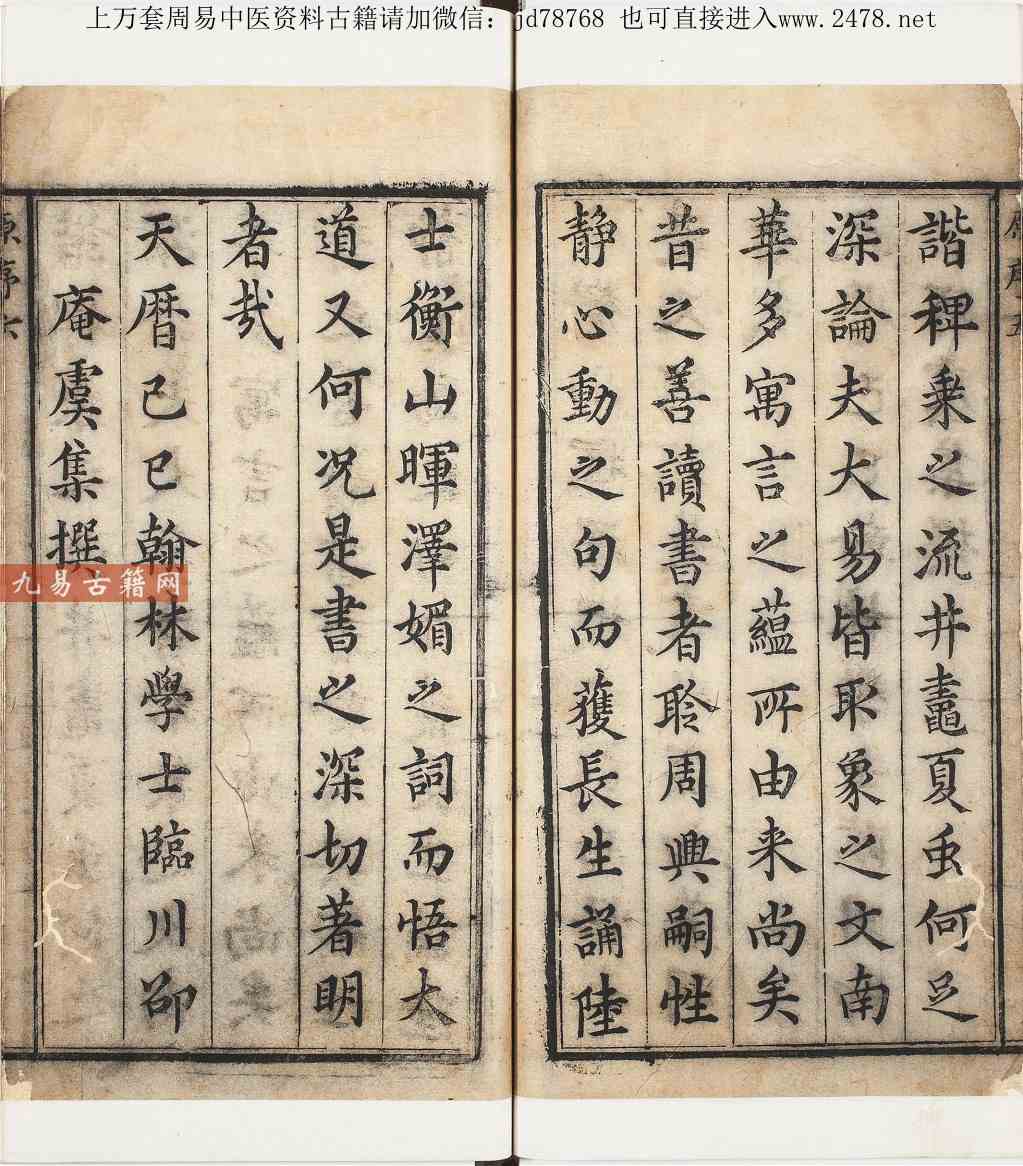 上万套周易中医资料古籍请加微信：jd78768 也可直接进入www.2478.net
諧稗乗之流井鼃夏虫何足
深論夫大易皆取象之文南
華多寓言之蘊所由来尚矣
昔之善讀書者聆周興嗣性
静心動之句而獲長生誦陸
士衡山暉澤媚之詞而悟大
道又何况是書之深切著明
者㢤
天曆己巳翰林學士臨川邵
庵虞集撰
原序五
原序六
九易古籍网